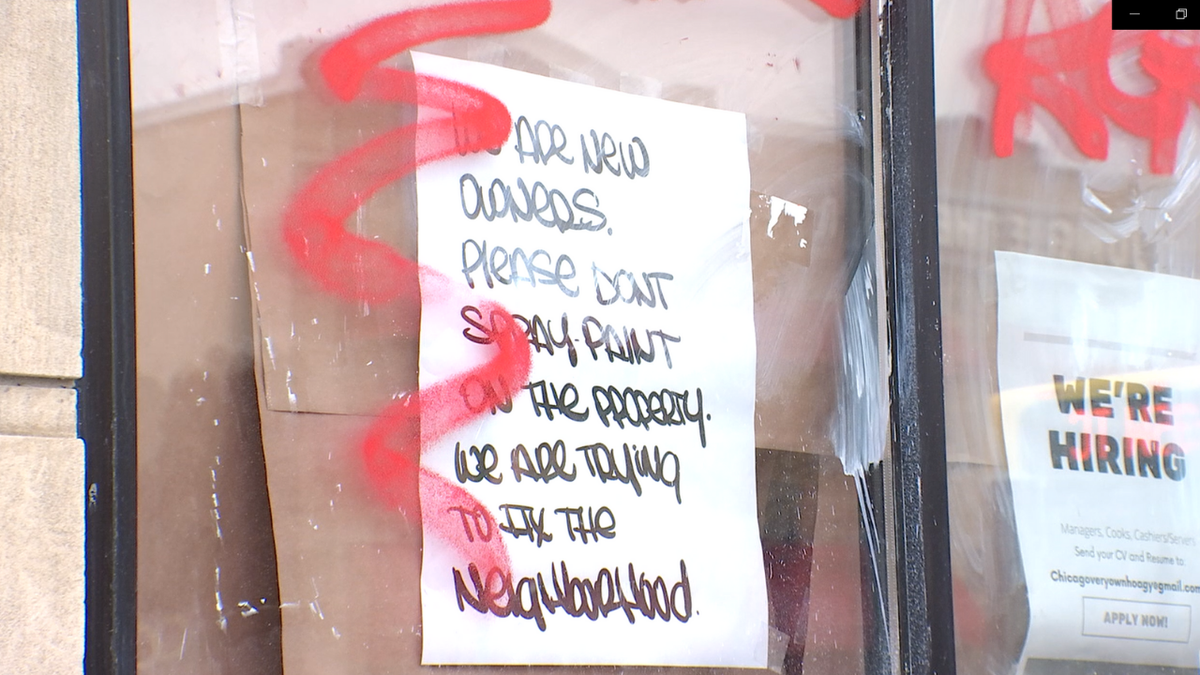 WE ARE NEW
OWNERS.
PLEASE DONT
SPRAY-PAINT
ON THE PROPERTY.
WE ARE TRYING
TO FIX THE
NEIGHBORHOOD.
WE'RE
HIRING
Managers, Cooks, Cashiers/Servers
Send your CV and Resume to:
APPLY NOW!